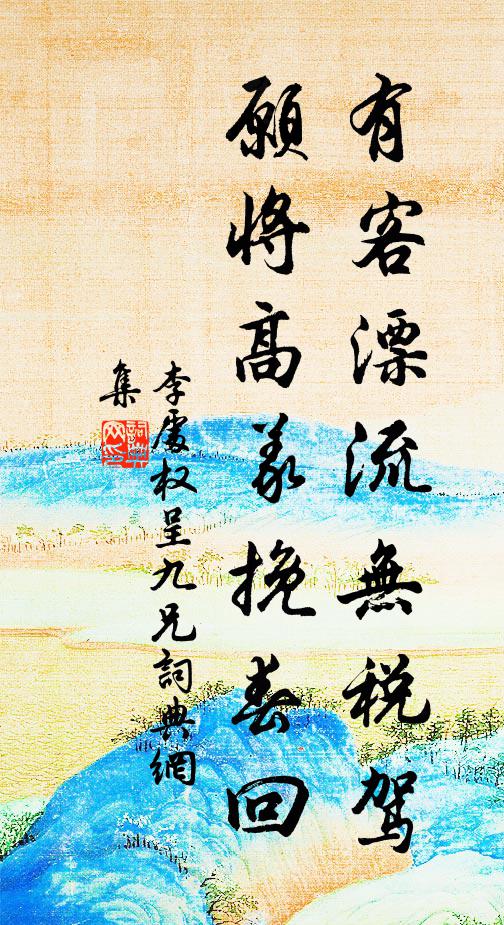 有客漂流無税駕
願將高義挽春回
李處权呈九兄詞典網
集